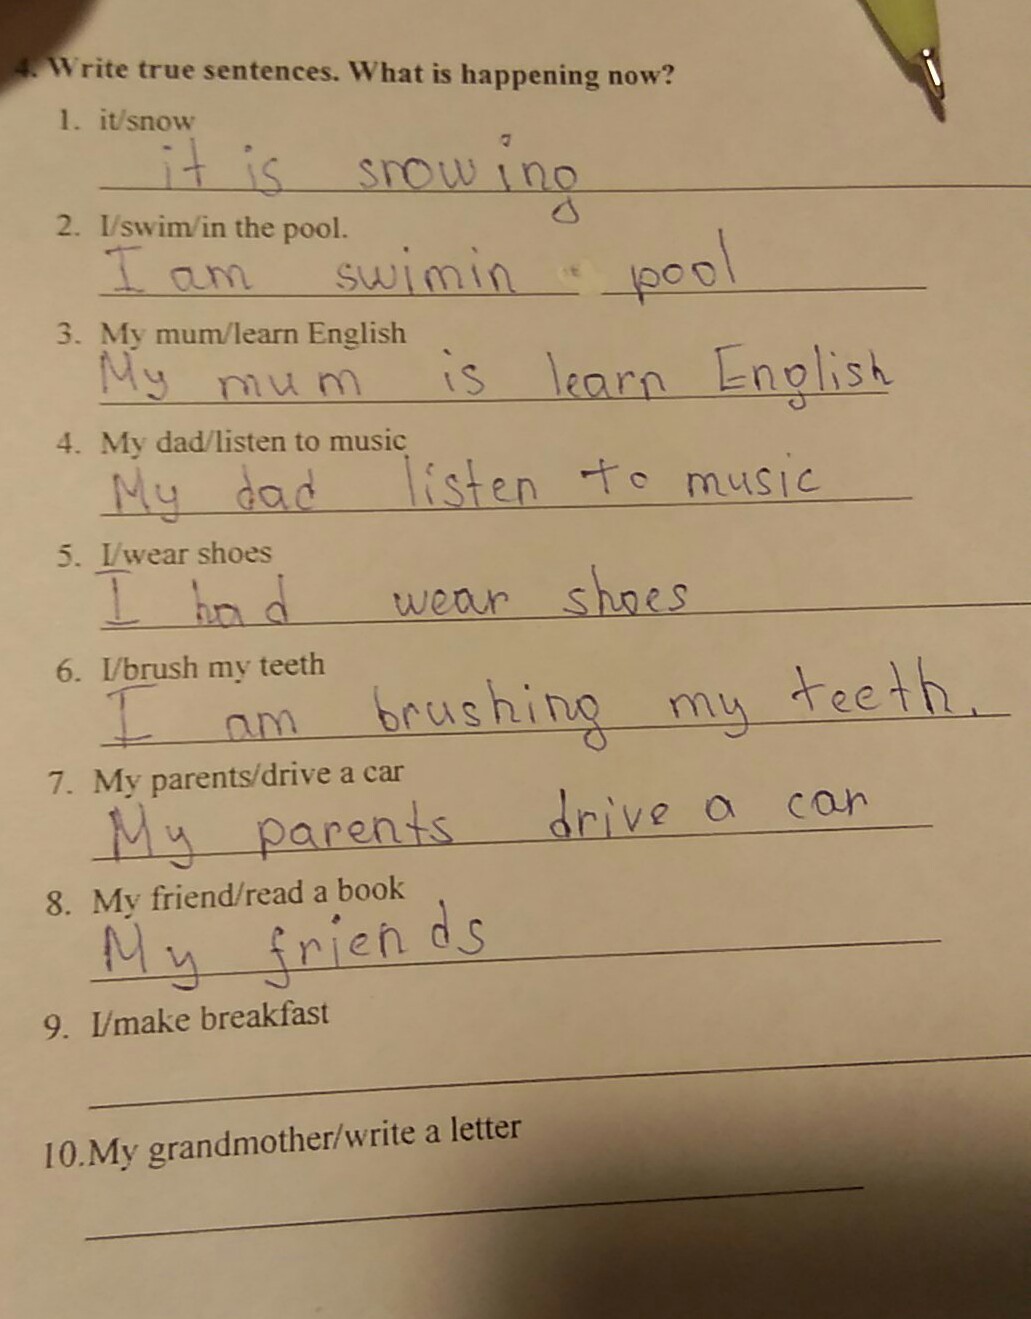 4. Write true sentences. What is happening now?
1. it/snow
it is snowing
2. I/swim/in the pool.
I am swimin pool
3. My mum/learn English
My mum is learn English
4. My dad/listen to music
My dad listen to music
5. I/wear shoes
I had wear shoes
6. I/brush my teeth
I am brushing my teeth.
7. My parents/drive a car
My parents drive a car
8. My friend/read a book
My friends
9. I/make breakfast
10.My grandmother/write a letter